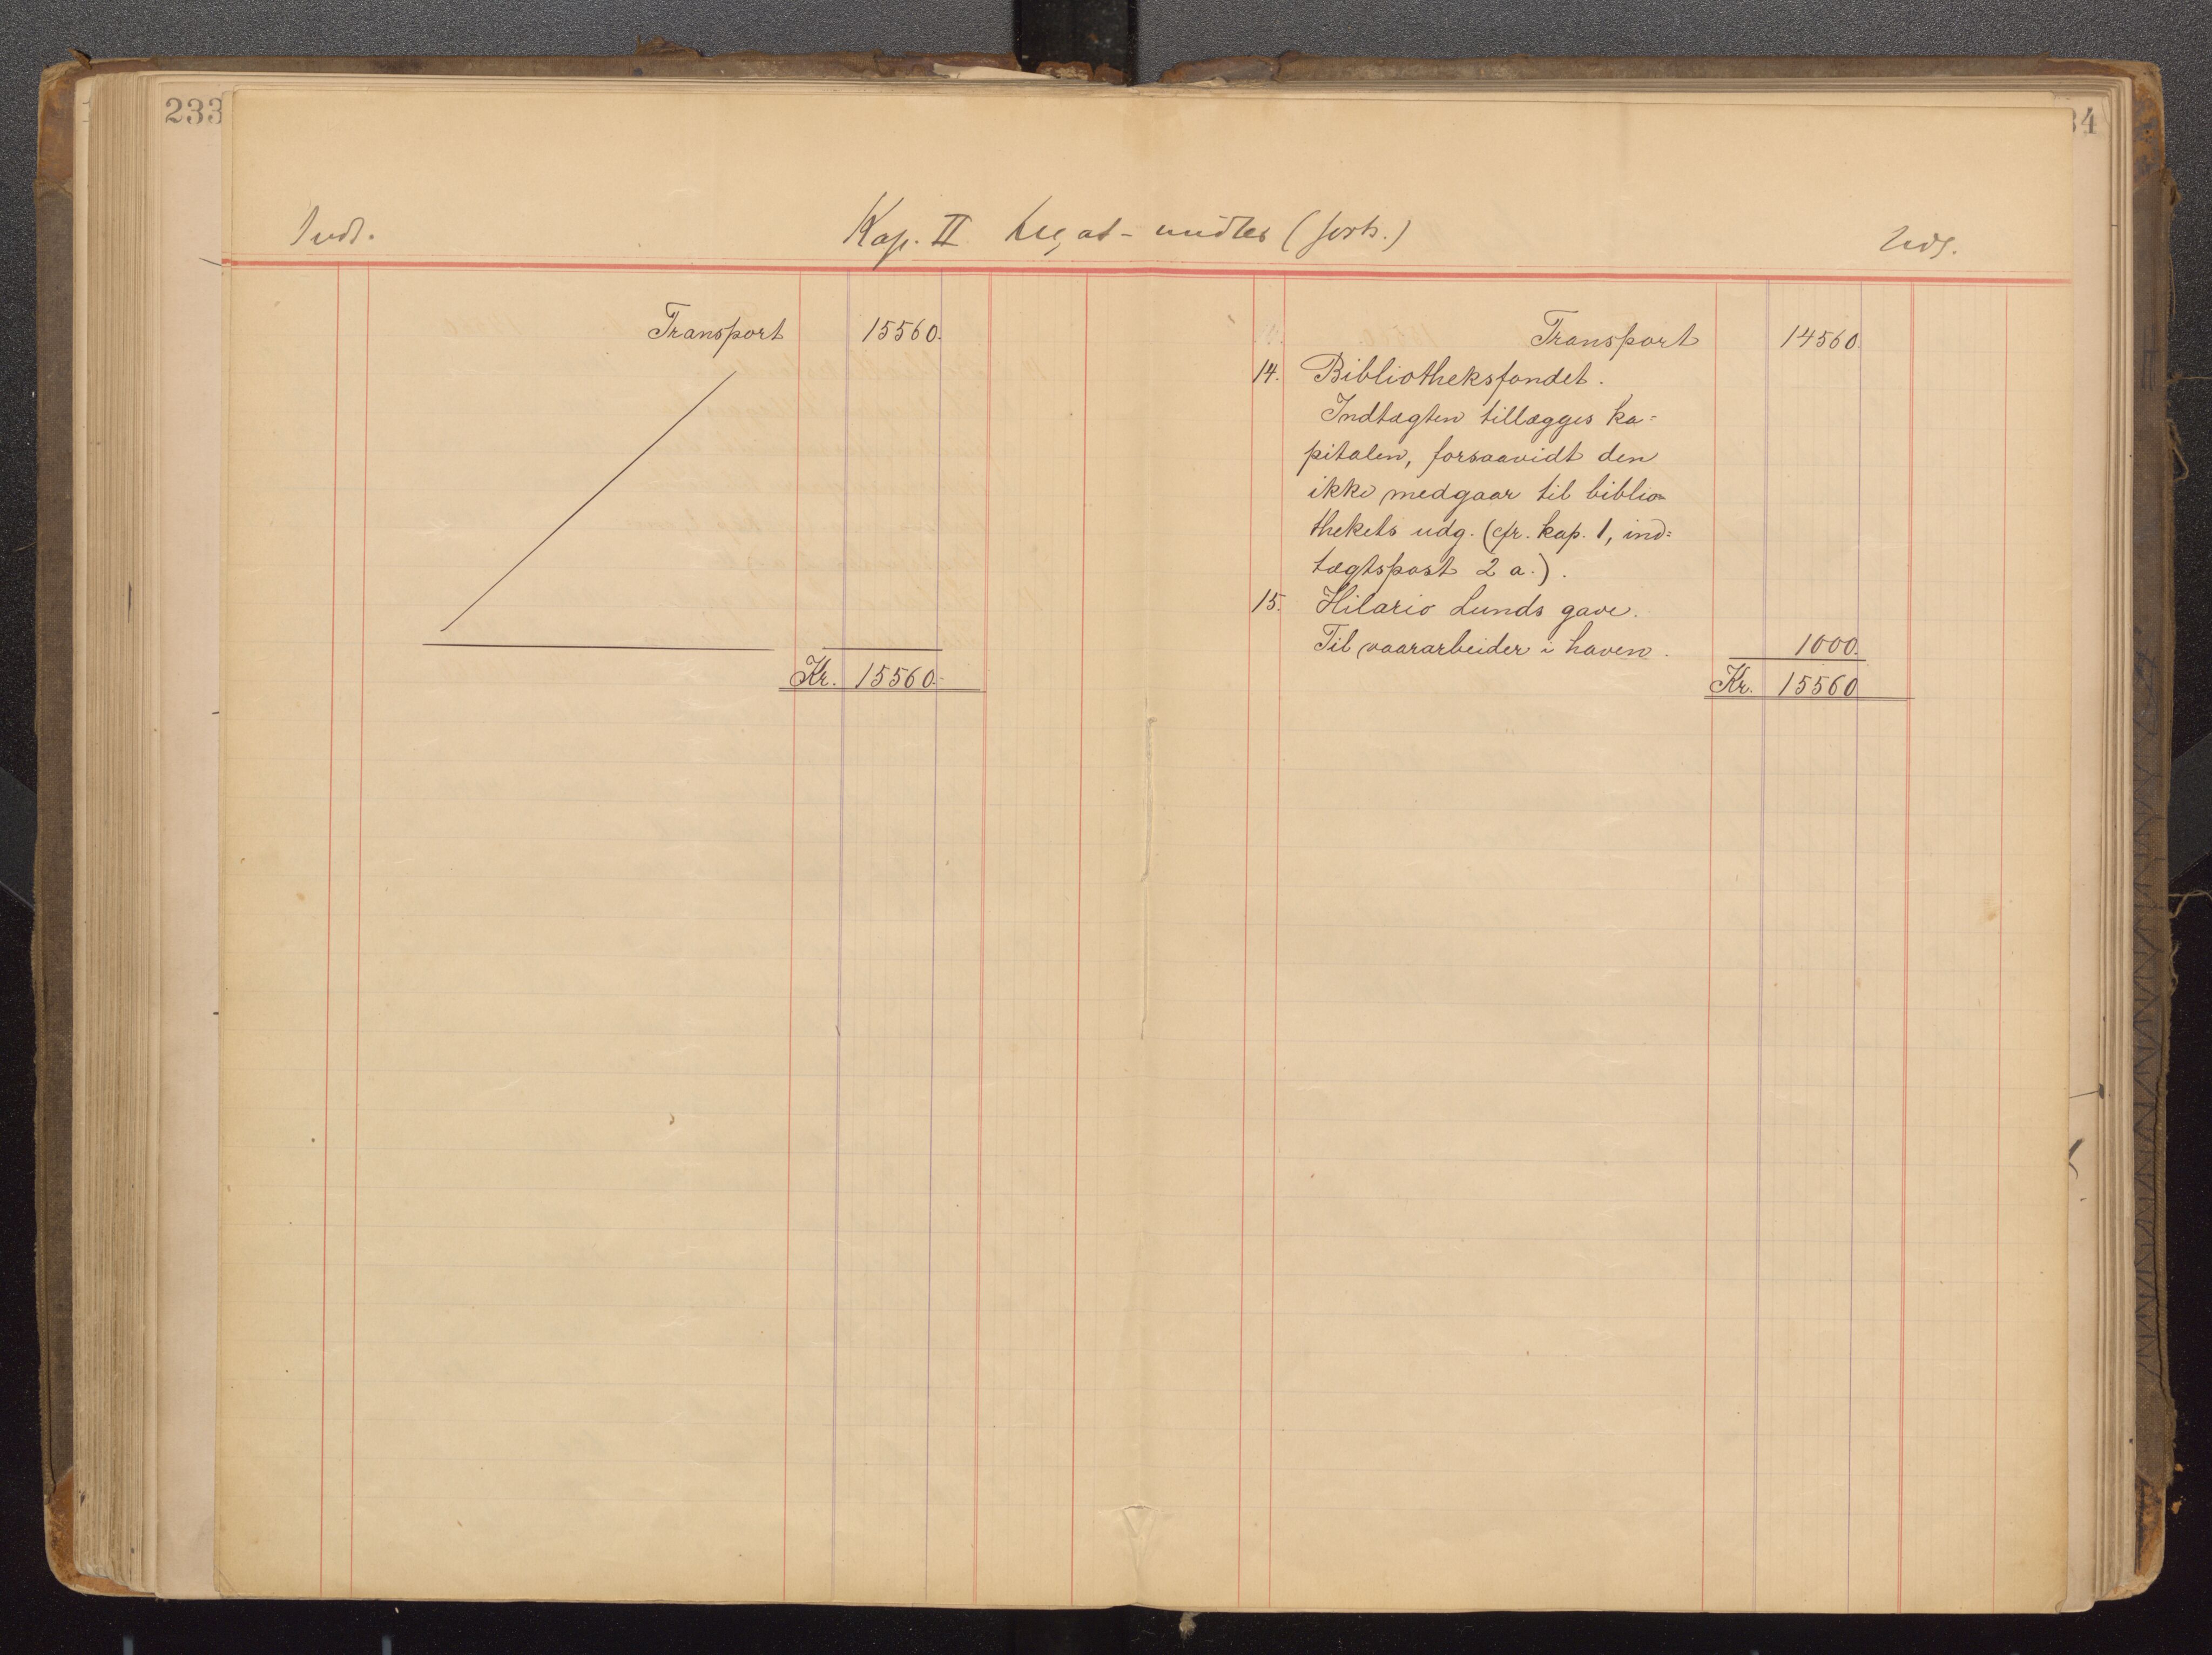 233
34
Indt.
Kap. II Legat-midler (forts.)
Udg.
Transport 15560.
Kr. 15560.-
Transport 14560.
14. Bibliotheksfondet.
Indtægten tillægges ka=
pitalen, forsaavidt den
ikke medgaar til biblio=
thekets udg. (cfr. kap. 1, ind=
tægtspost 2 a.).
15. Hilario Lunds gave.
Til vaararbeider i haven. 1000.
Kr. 15560